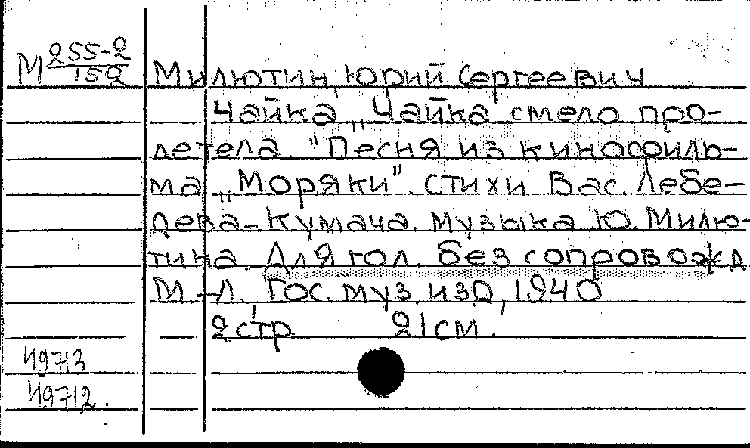 М 255-2
152
Милютин, Юрий Сергеевич
Чайка „Чайка смело про-
летела..." Песня из кинофиль-
ма „Моряки". Стихи Вас. Лебе-
дева-Кумача. Музыка Ю. Милю-
тина. Для гол. без сопровожд.
М.-Л., Гос. муз. изд., 1940
2 стр. 21 см.
49713
49712.